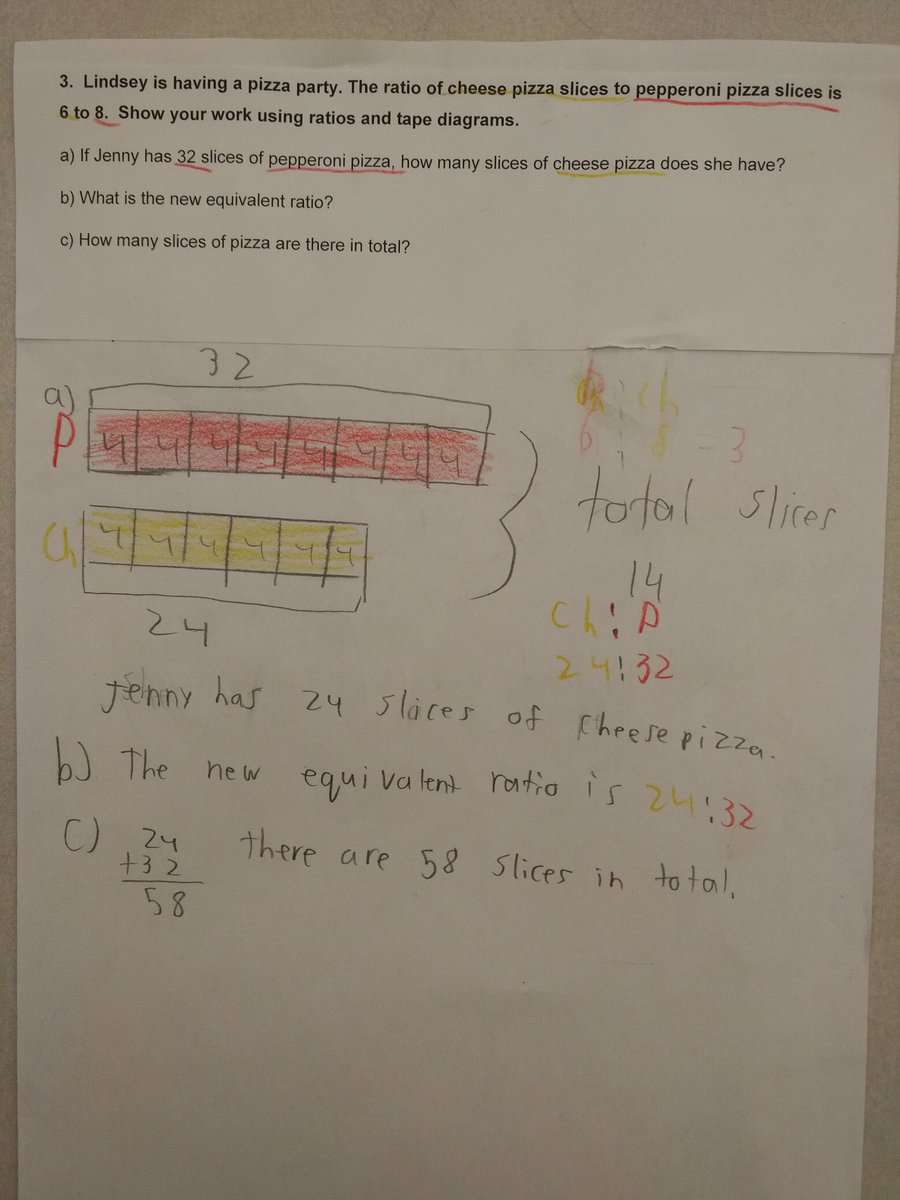 3. Lindsey is having a pizza party. The ratio of cheese pizza slices to pepperoni pizza slices is
6 to 8. Show your work using ratios and tape diagrams.
a) If Jenny has 32 slices of pepperoni pizza, how many slices of cheese pizza does she have?
b) What is the new equivalent ratio?
c) How many slices of pizza are there in total?
32
a)
P 4 4 4 4 4 4 4 4
Ch 4 4 4 4 4 4
24
ch
6 : 8 - 3
total slices
14
Ch : P
24:32
Jenny has 24 slices of cheese pizza.
b) The new equivalent ratio is 24:32
C) 24
+32
58
there are 58 slices in total.